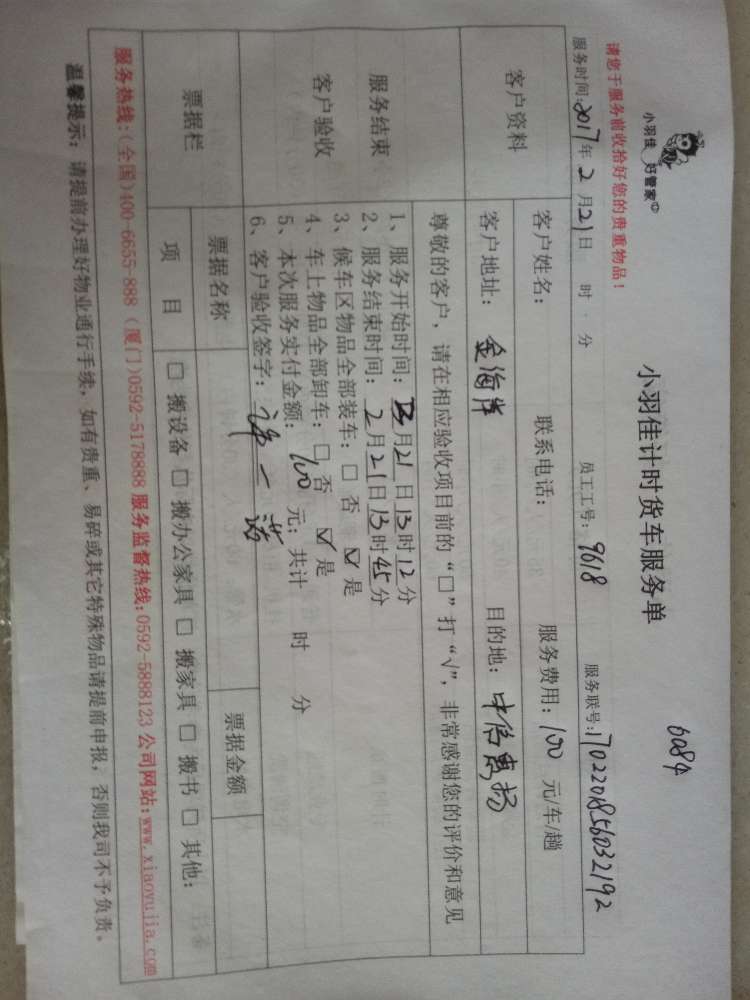 小羽佳 好管家
小羽佳计时货车服务单
请您于服务前收拾好您的贵重物品！
服务时间：2017年 2 月21日 时 分 员工工号：9618 服务联号：1702201856032192
客户资料
客户姓名： 联系电话： 服务费用：100 元/车/趟
客户地址：金海岸 目的地：中信惠扬
尊敬的客户，请在相应验收项目前的“□”打“√”，非常感谢您的评价和意见
服务结束
客户验收
1、服务开始时间：2月21日13时12分
2、服务结束时间：2月21日13时45分
3、候车区物品全部装车：□ 否 ☑ 是
4、车上物品全部卸车：□ 否 ☑ 是
5、本次服务实付金额：100 元；共计 时 分
6、客户验收签字：
票据栏
票据名称 票据金额
项 目 □ 搬设备 □ 搬办公家具 □ 搬家具 □ 搬书 □ 其他：
服务热线：(全国)400-6655-888 (厦门)0592-5178888 服务监督热线：0592-5888123 公司网站：www.xiaoyujia.com
温馨提示：请提前办理好物业通行手续，如有贵重、易碎或其它特殊物品请提前申报，否则我司不予负责。